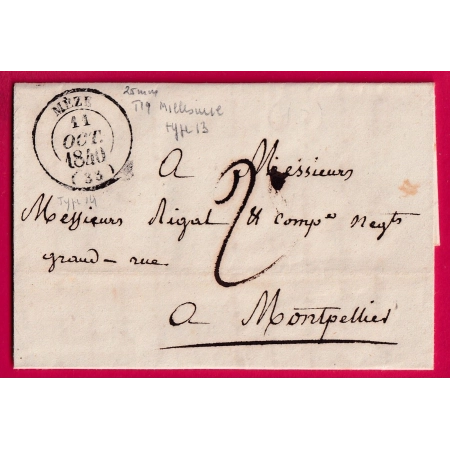 MÈZE
11
OCT.
1840
(33)
25mm
T19 Millesime
type 13
Type 14
A Messieurs
Messieurs Rigal & compe negts
grand-rue
2
A Montpellier